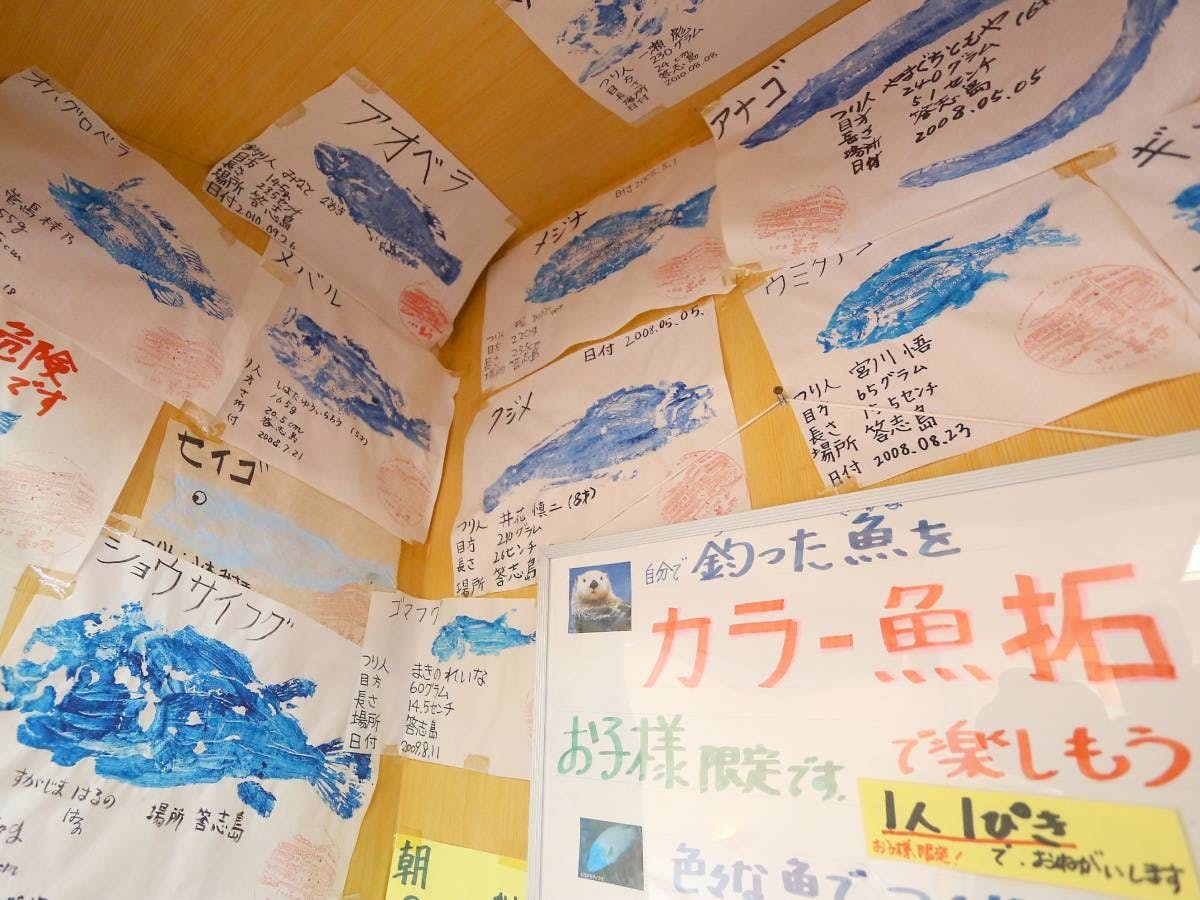 一瀬 彪
230グラム
24cm
答志島
2010.08.08
オハグロベラ
アオベラ
釣り人 みなと
目方 145g
長さ
場所 答志島
日付 2010.09.26
メジナ
日付 2008.5.1
つり人
目方 220g
長さ 23.5cm
場所 答志島
アナゴ
つり人 やまぐちともや
目方 240グラム
長さ 51センチ
場所 答志島
日付 2008.05.05
メバル
しばたゆういちろう (5才)
165g
20.5cm
答志島
2008.7.21
日付 2008.05.05.
クジメ
つり人 井花 慎二 (8才)
目方 210グラム
長さ 26センチ
場所 答志島
ウミタナゴ
つり人 宮川 悟
目方 65グラム
長さ 15.5センチ
場所 答志島
日付 2008.08.23
危険
です
セイゴ
ショウサイフグ
すがじま はるの
場所 答志島
ゴマフグ
つり人 まきのれいな
目方 60グラム
長さ 14.5センチ
場所 答志島
日付 2009.8.11
朝
自分で 釣った魚を
カラー魚拓
お子様限定です。 で楽しもう
1人1ぴき
お子様限定! で、おねがいします
色々な魚で